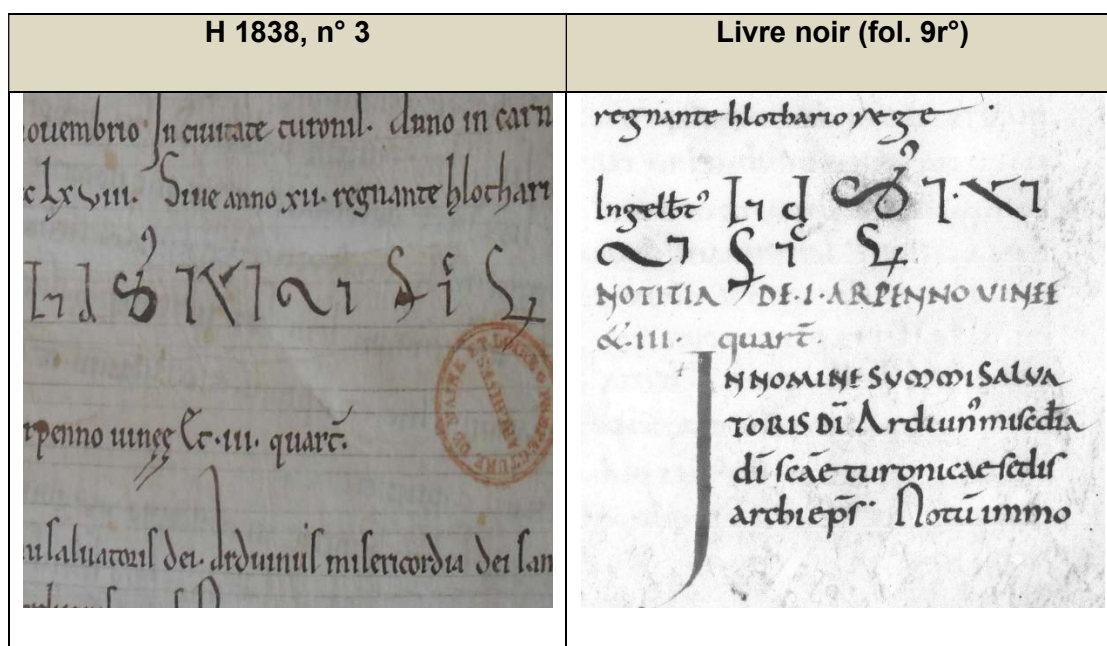 H 1838, n° 3
Livre noir (fol. 9r°)
nouembrio In ciuitate turonis. Anno in carn
Lx VIII. Siue anno XII. regnante hlothari
rpenno uineę Et .III. quart̄.
saluatoris dei. Arduinus misericordia dei san
PREFECTURE DE MAINE ET LOIRE ARCHIVES
regnante hlothario rege
Ingelbt᾿
NOTITIA DE .I. ARPENNO VINEE
&.III. quart̄.
IN NOMINE SVMMI SALVA
TORIS DĪ Arduin᾿ miscdia
dī scāe turonicae sedis
archiep̄s Notū immo